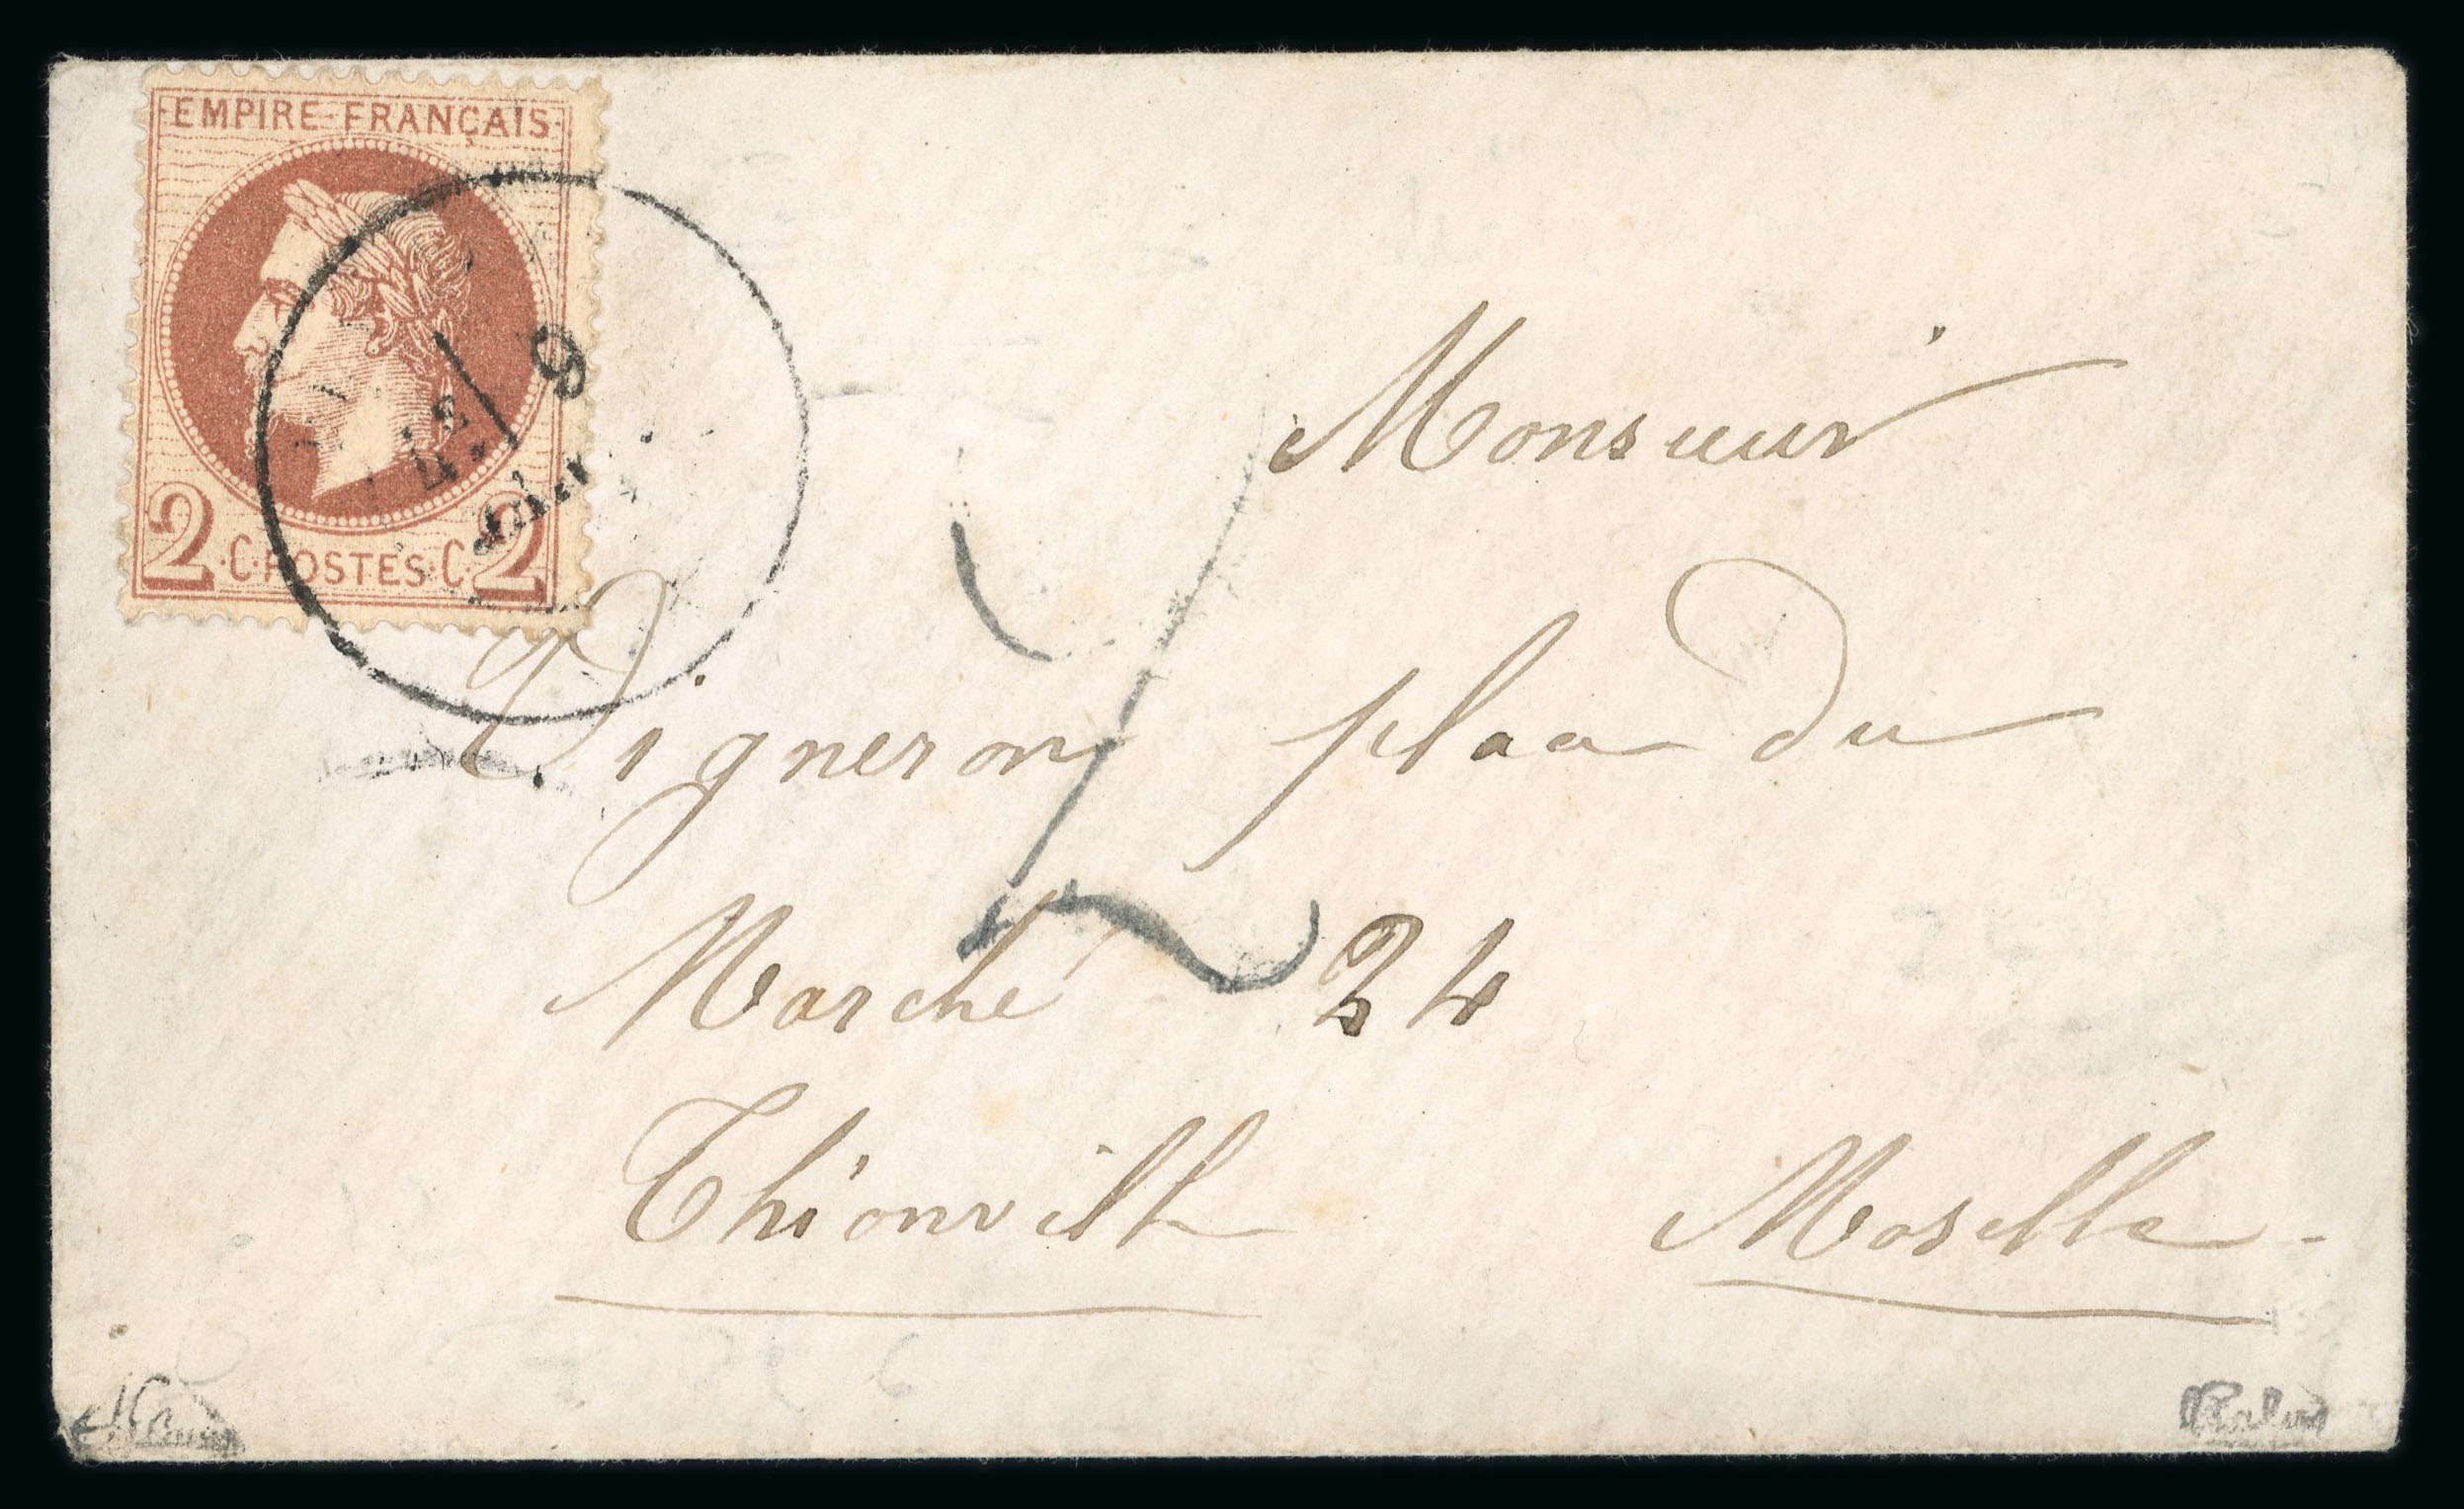 EMPIRE FRANÇAIS
2 C. POSTES C. 2
9
Monsieur
Vigneron place du
Marché 24
Thionville Moselle